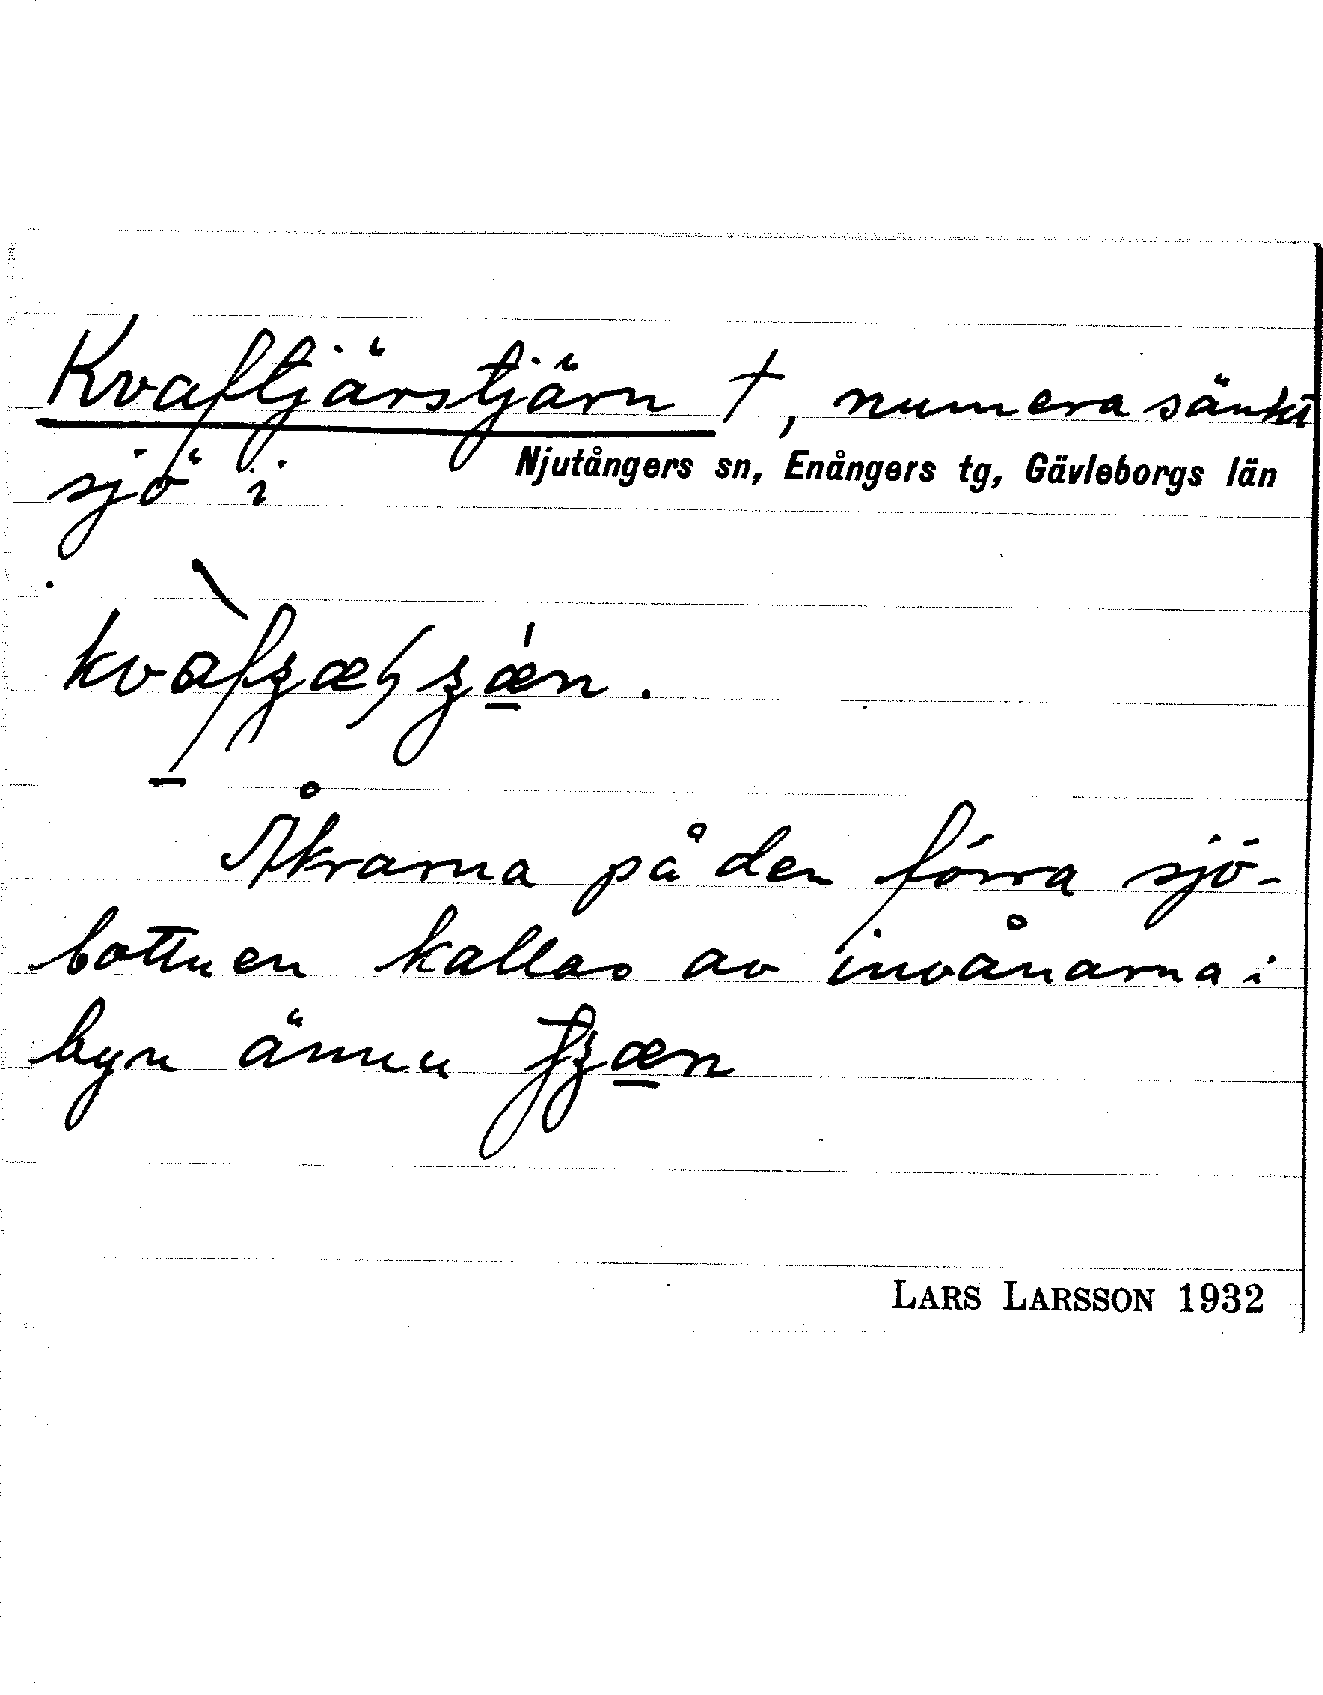 Kvaftjärstjärn †, numera sänkt
sjö i Njutångers sn, Enångers tg, Gävleborgs län
Åkrarna på den förra sjö-
bottnen kallas av invånarna i
byn ännu
LARS LARSSON 1932